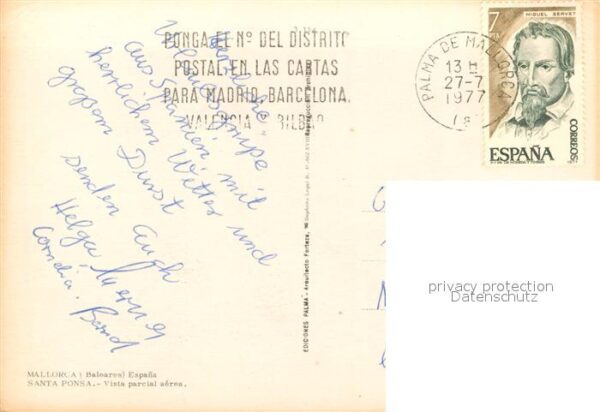 PONGA EL Nº DEL DISTRITO
POSTAL EN LAS CARTAS
PARA MADRID-BARCELONA.
VALENCIA BILBAO
PALMA DE MALLORCA
13 H
27-7
1977
7
PTA
MIGUEL SERVET
CORREOS
ESPAÑA
Urlaubsgrüße
aus Spanien mit
herrlichem Wetter und
großem Durst
senden Euch
Helga Werner
Cornelia. Bernd
EDICIONES PALMA - Arquitecto Forteza,
privacy protection
Datenschutz
MALLORCA ( Baleares) España
SANTA PONSA.- Vista parcial aérea.